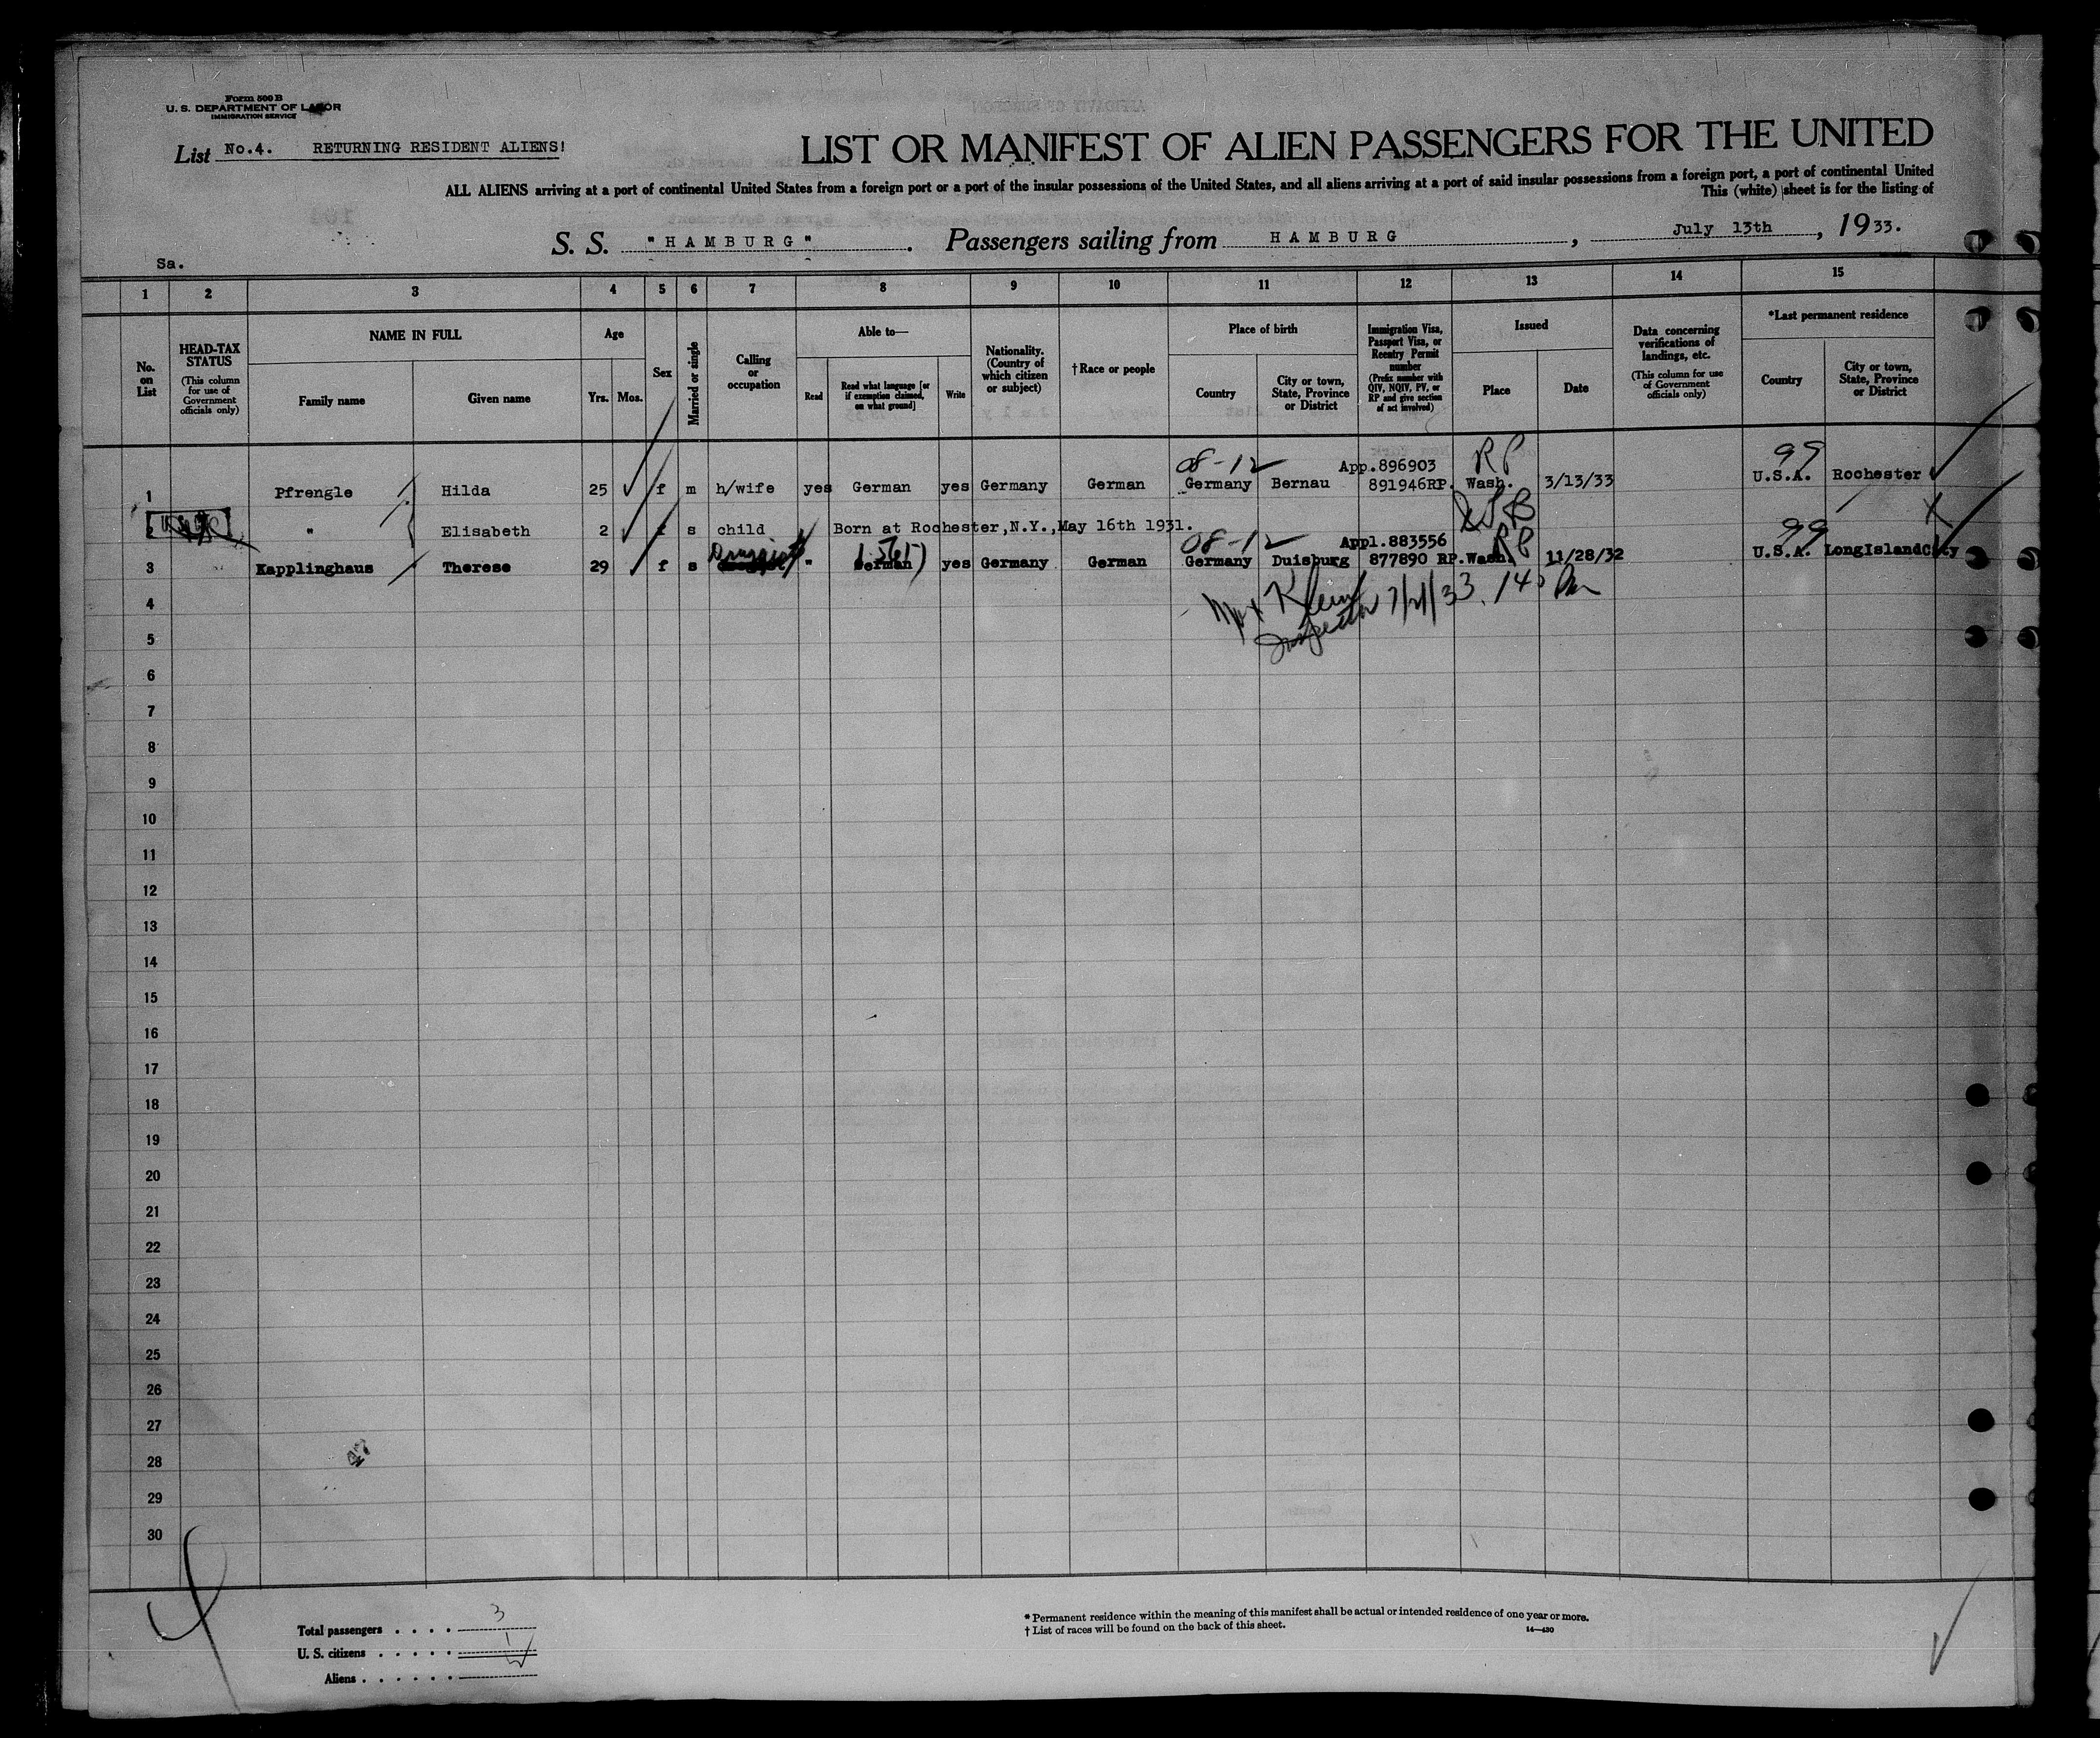 Form 500 B
U. S. DEPARTMENT OF LABOR
IMMIGRATION SERVICE
List No.4. RETURNING RESIDENT ALIENS!
LIST OR MANIFEST OF ALIEN PASSENGERS FOR THE UNITED
ALL ALIENS arriving at a port of continental United States from a foreign port or a port of the insular possessions of the United States, and all aliens arriving at a port of said insular possessions from a foreign port, a port of continental United
This (white) sheet is for the listing of
S. S. "HAMBURG". Passengers sailing from HAMBURG, July 13th, 1933.
Sa.
1 2 3 4 5 6 7 8 9 10 11 12 13 14 15
No. on List
HEAD-TAX STATUS
(This column for use of Government officials only)
NAME IN FULL
Family name
Given name
Age
Yrs. Mos.
Sex
Married or single
Calling or occupation
Able to—
Read
Read what language [or if exemption claimed, on what ground]
Write
Nationality. (Country of which citizen or subject)
† Race or people
Place of birth
Country
City or town, State, Province or District
Immigration Visa, Passport Visa, or Reentry Permit number
(Prefix number with QIV, NQIV, PV, or RP and give section of act involved)
Issued
Place
Date
Data concerning verifications of landings, etc.
(This column for use of Government officials only)
*Last permanent residence
Country
City or town, State, Province or District
08-12 App.896903 RP 99
1 Pfrengle Hilda 25 f m h/wife yes German yes Germany German Germany Bernau 891946RP. Wash. 3/13/33 U.S.A. Rochester
2 " Elisabeth 2 f s child Born at Rochester,N.Y.,May 16th 1931.
08-12 Appl.883556 RP 99
3 Kapplinghaus Therese 29 f s " German yes Germany German Germany Duisburg 877890 RP.Wash. 11/28/32 U.S.A. LongIslandCity
4
Klein
5
Inspector
6
7
8
9
10
11
12
13
14
15
16
17
18
19
20
21
22
23
24
25
26
27
28
29
30
Total passengers . . . . 3
U. S. citizens . . . . . 1
Aliens . . . . . .
* Permanent residence within the meaning of this manifest shall be actual or intended residence of one year or more.
† List of races will be found on the back of this sheet.
14—430